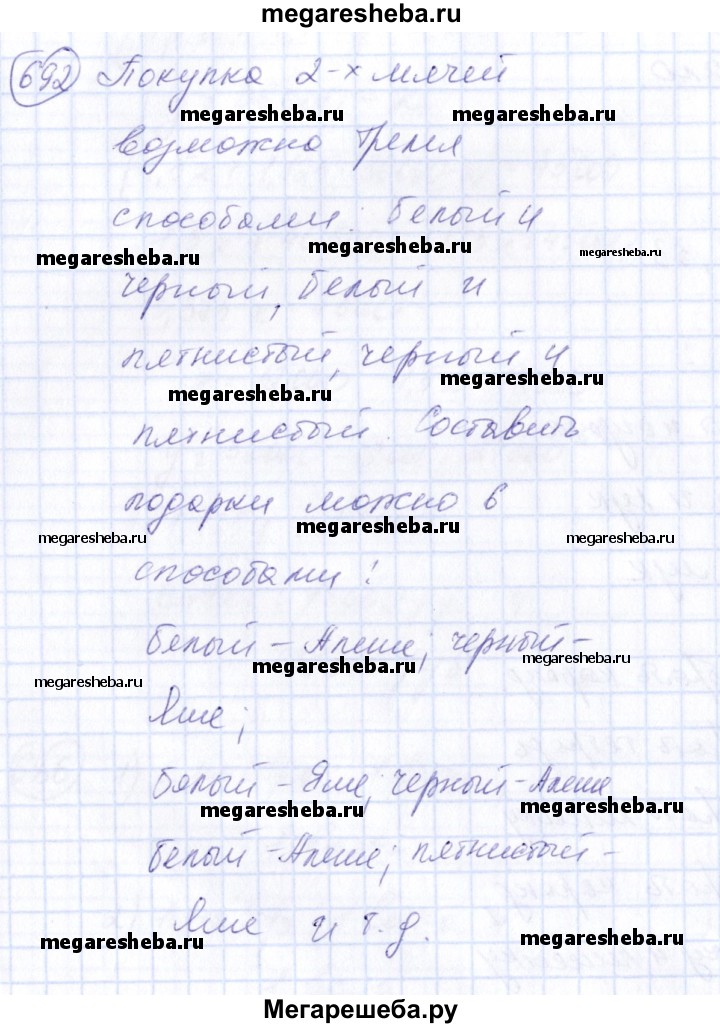 megaresheba.ru
692 Покупка 2-х мячей
megaresheba.ru megaresheba.ru
возможно тремя
способами: белый и
megaresheba.ru megaresheba.ru megaresheba.ru
черный, белый и
пятнистый, черный и
megaresheba.ru megaresheba.ru
пятнистый. Составить
подарки можно 6
megaresheba.ru megaresheba.ru megaresheba.ru
способами:
белый - Алеше; черный -
megaresheba.ru megaresheba.ru megaresheba.ru
Яше;
белый - Яше; черный - Алеше
megaresheba.ru megaresheba.ru
белый - Алеше; пятнистый -
Яше и т.д.
megaresheba.ru megaresheba.ru
Мегарешеба.ру